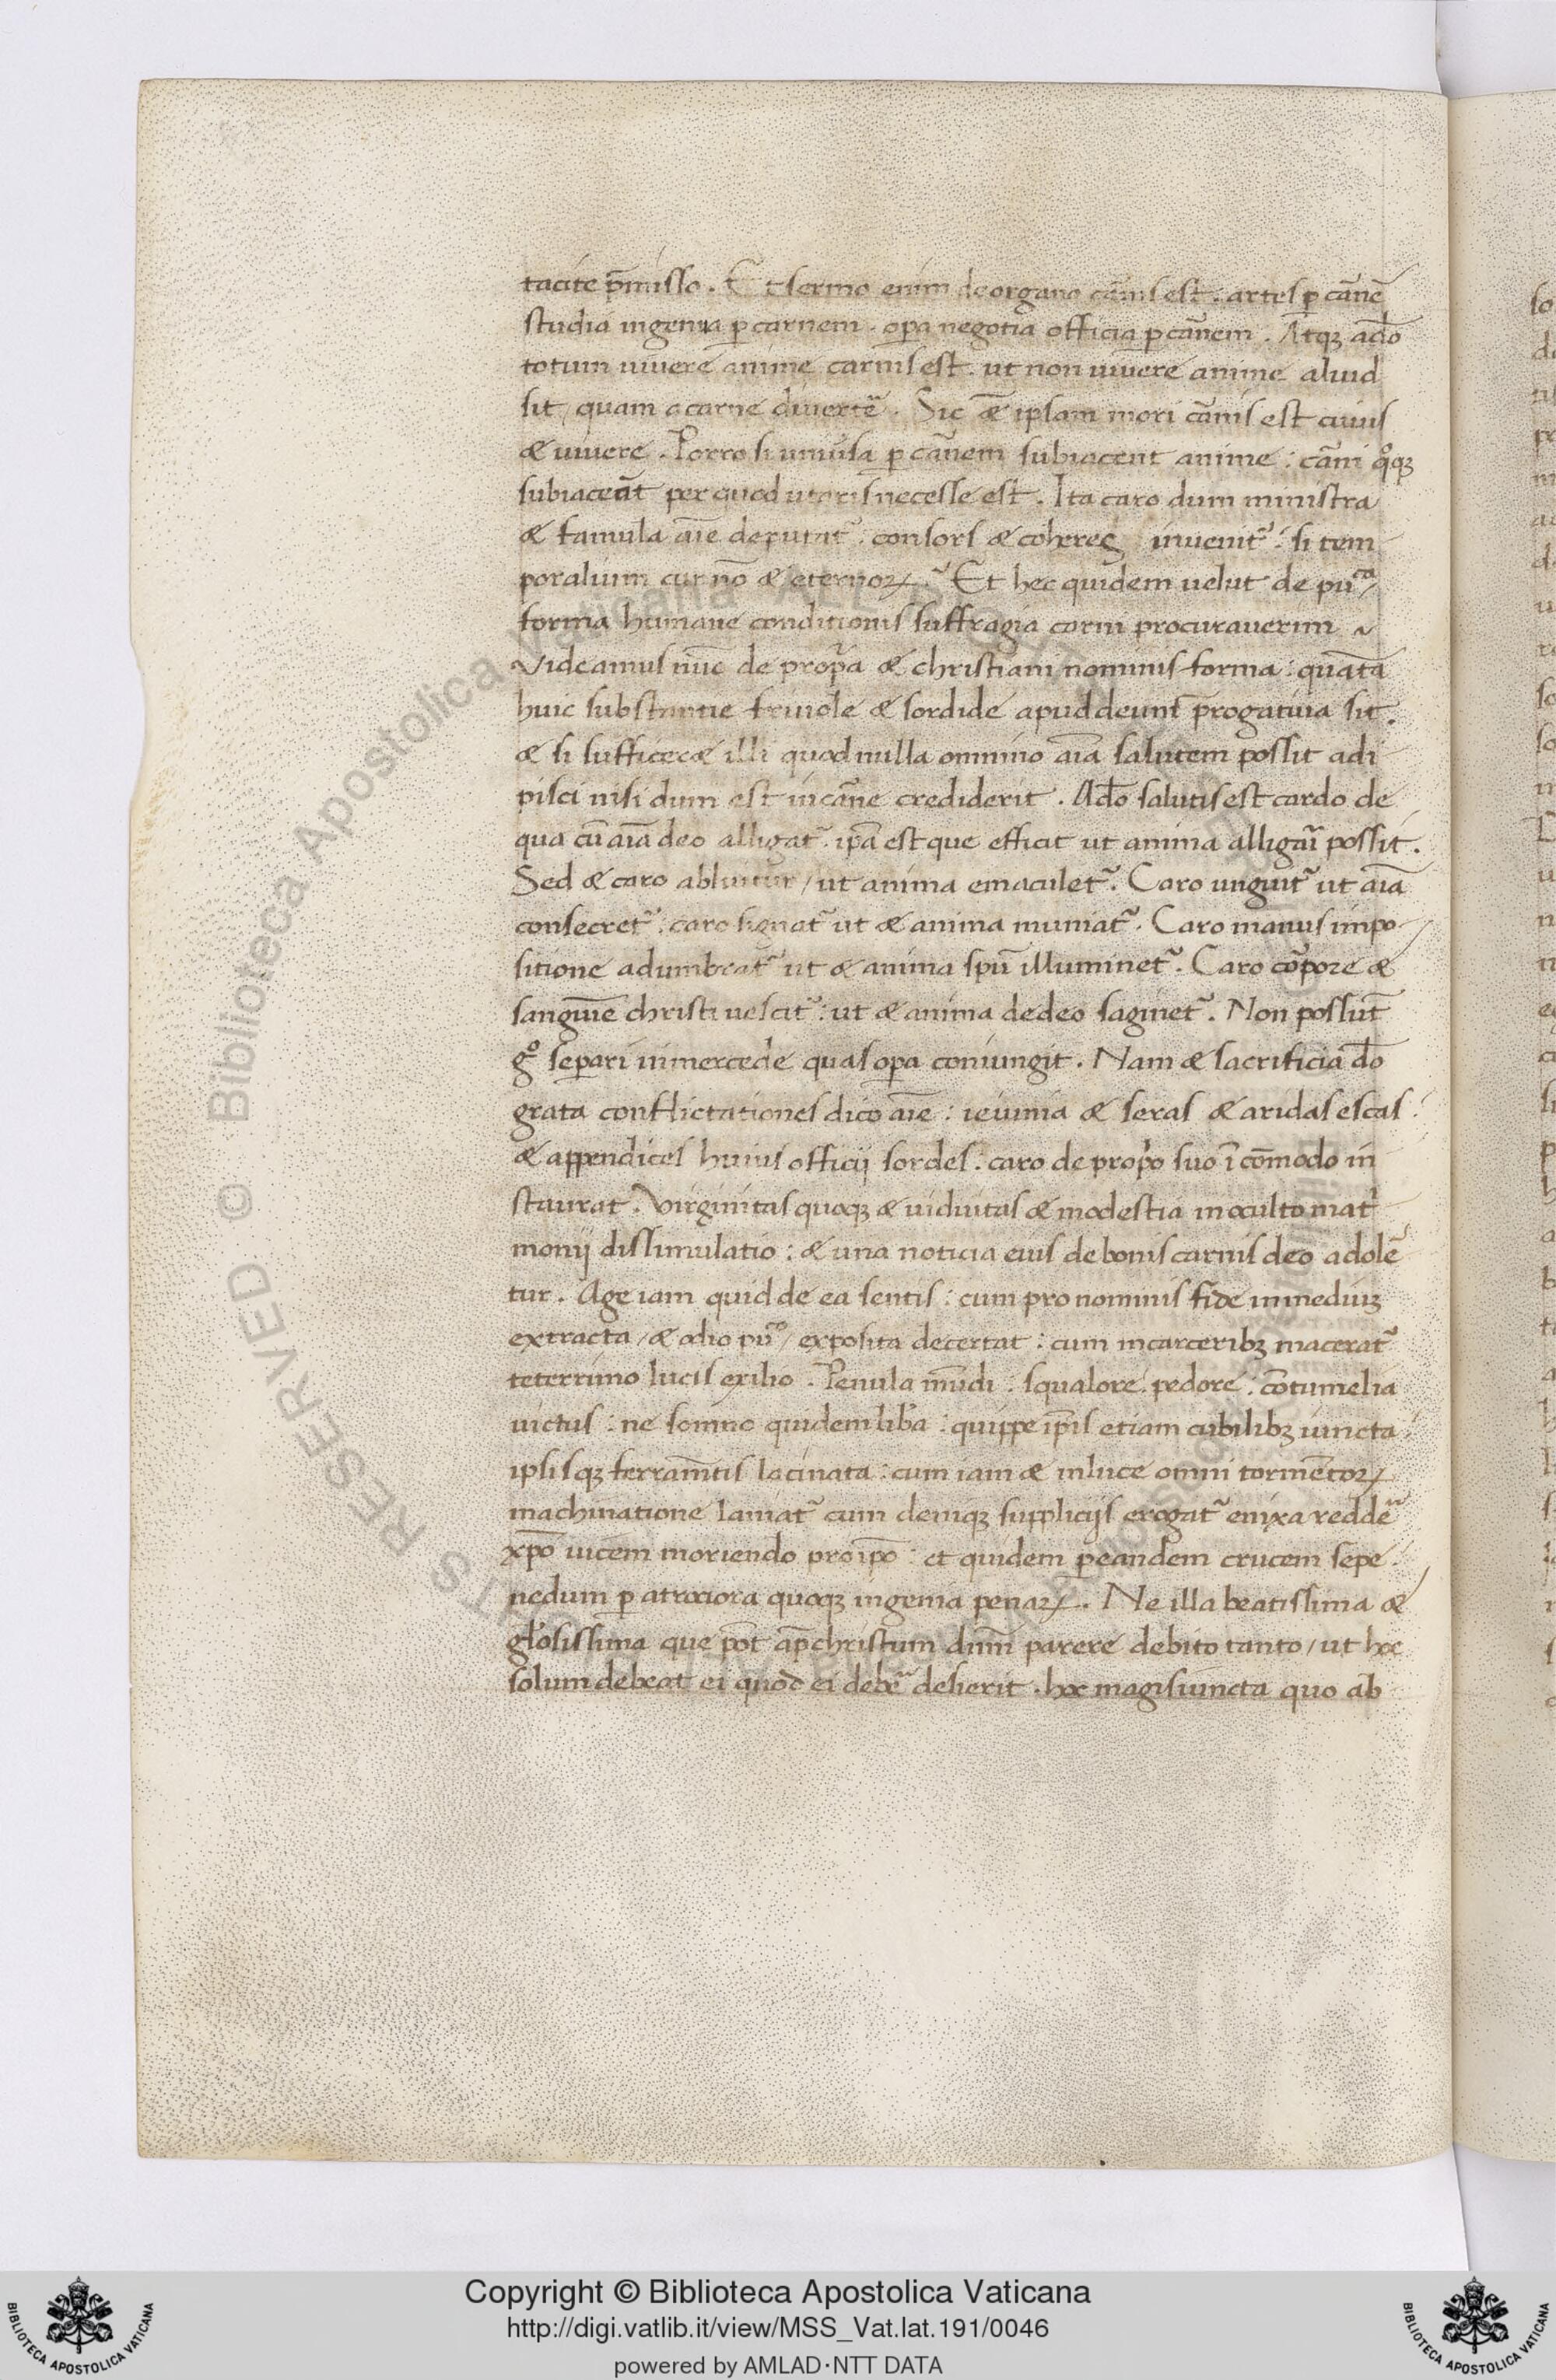 tacite p̄misso. Et sermo enim de organo cārnis est. artes ꝑ cārnē
studia ingenia ꝑ carnem. oꝑa negotia officia ꝑ cārnem. Atqꝫ adō
totum vivere anime carnis est. ut non vivere anime aliud
sit / quam a carne divertē. Sic & ipsam mori cārnis est cuius
& vivere. Porro si univ̄sa ꝑ cārnem subiacent anime: cārni qͦqꝫ
subiacēnt per quod utaris necesse est. Ita caro dum ministra
& famula aīe deputatᷣ. consors & coheres invenitᷣ: si tem
poralium cur nō & eternoꝝ. Et hec quidem velut de pu͞ca /
forma humane conditionis suffragia carni procuraverim ~
Videamus nūc de propͥa & christiani nominis forma: quāta
huic substantie frivole & sordide apud deum p̄rogativa sit.
& si sufficer& illi quod nulla omnino aīa salutem possit adi
pisci nisi dum est in cārne crediderit. Adō salutis est cardo de
qua cū aīa deo alligatᷣ. ip̄a est que efficit ut anima alligāri possit.
Sed & caro abluitur / ut anima emaculetᷣ. Caro unguitᷣ ut aīa
consecretᷣ. caro signatᷣ ut & anima muniatᷣ. Caro manus impo
sitione adumbratᷣ ut & anima spū illuminetᷣ. Caro cōrpore &
sanguīe christi vescitᷣ: ut & anima de deo saginetᷣ. Non possūt
gͦ seꝑari in mercede quas oꝑa coniungit. Nam & sacrificia dō
grata conflictationes dico aīe: ieiunia & seras & aridas escas:
& appendices huius officij sordes. caro de propͥo suo ī cōmodo in
staurat. Virginitas quoqꝫ & viduitas & modestia in occulto matͥ
monij dissimulatio: & una noticia eius de bonis carnis deo adolē
tur. Age iam quid de ea sentis: cum pro nominis fide in mediuꝫ
extracta / & odio pu͞co / exposita decertat: cum in carceribꝫ maceratᷣ
teterrimo lucis exilio. Penula mūdi: squalore. pedore. cōtumelia
victus: ne somno quidem lib̄a: quippe ip̄is etiam cubilibꝫ vincta:
ipsisqꝫ ferram̄tis lacinata: cum iam & in luce omni tormētoꝝ
machinatione laniatᷣ cum deniqꝫ supplicijs erogatᷣ enixa reddē
xp̄o vicem moriendo pro ip̄o: et quidem ꝑ eandem crucem sepe.
nedum ꝑ atrociora quoqꝫ ingenia penaꝝ. Ne illa beatissima &
gl̄osissima que pōt ap̄ christum dnm̄ parere debito tanto / ut hoc
solum debeat ei quod ei debē desierit. hoc magis iuncta quo ab
Copyright © Biblioteca Apostolica Vaticana
http://digi.vatlib.it/view/MSS_Vat.lat.191/0046
powered by AMLAD·NTT DATA